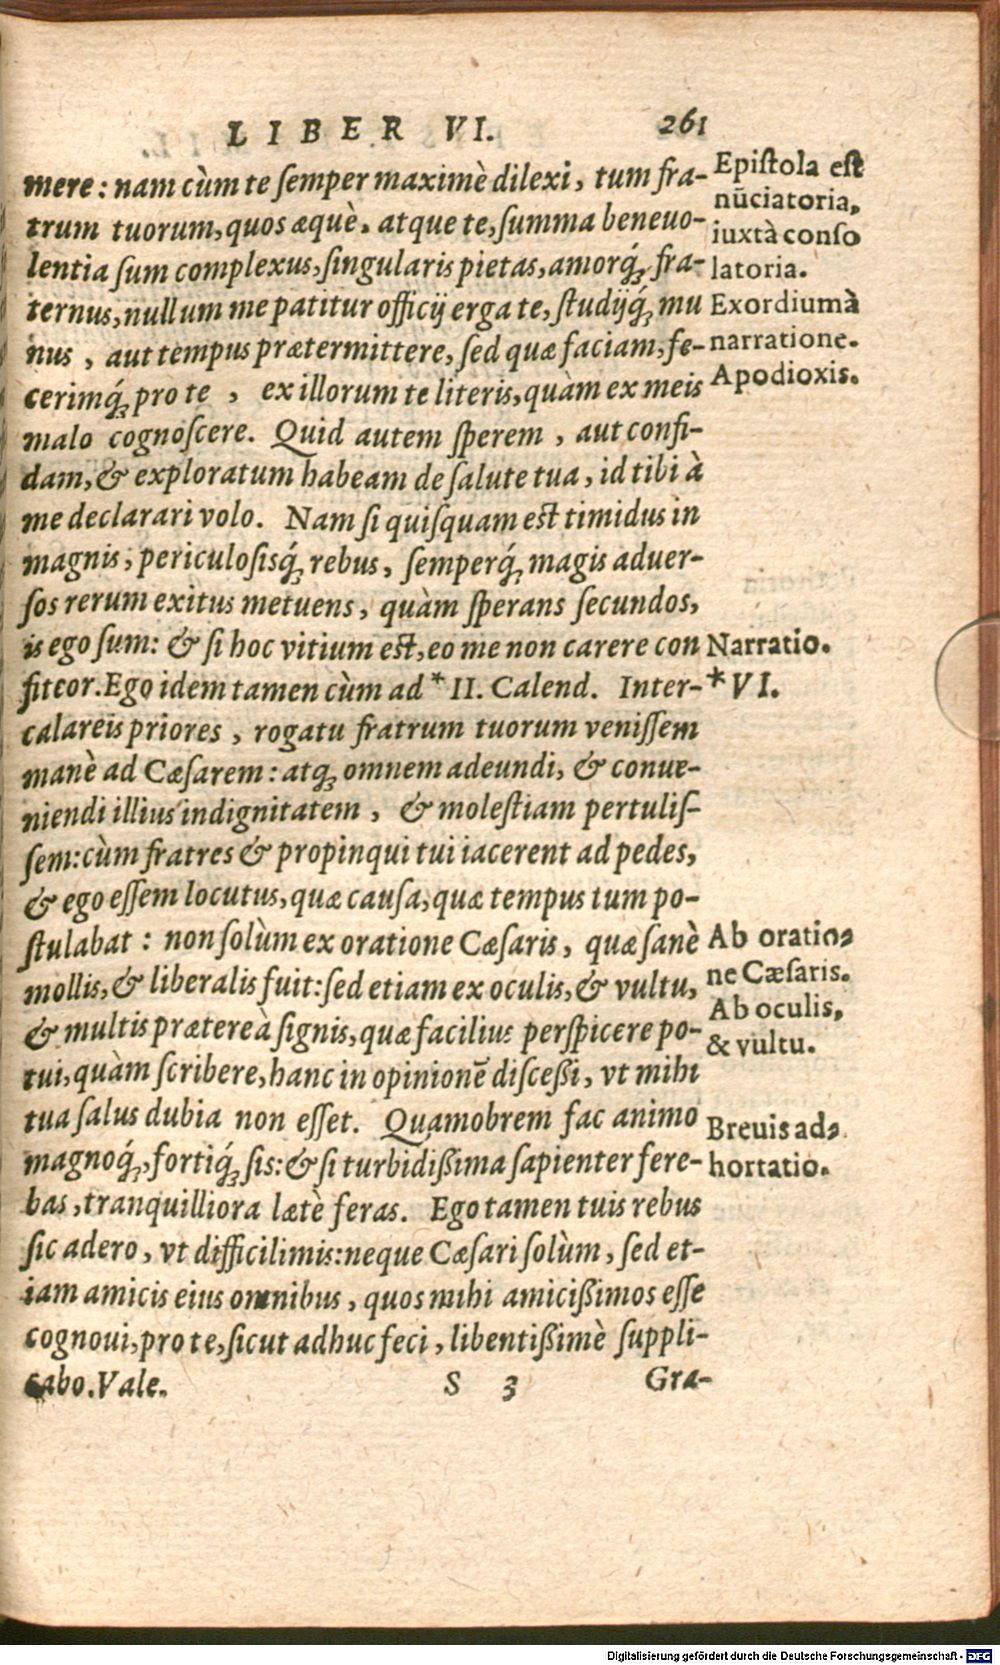 LIBER VI. 261
mere: nam cùm te ſemper maximè dilexi, tum fra-
trum tuorum, quos æquè, atque te, ſumma beneuo-
lentia ſum complexus, ſingularis pietas, amorq́; fra-
ternus, nullum me patitur officij erga te, ſtudijq́; mu
nus, aut tempus prætermittere, ſed quæ faciam, fe-
cerimq́; pro te, ex illorum te literis, quàm ex meis
malo cognoſcere. Quid autem ſperem, aut confi-
dam, & exploratum habeam de ſalute tua, id tibi à
me declarari volo. Nam ſi quiſquam est timidus in
magnis, periculoſisq́; rebus, ſemperq́; magis aduer-
ſos rerum exitus metuens, quàm ſperans ſecundos,
is ego ſum: & ſi hoc vitium est, eo me non carere con
fiteor. Ego idem tamen cùm ad * II. Calend. Inter-
calareis priores, rogatu fratrum tuorum veniſſem
manè ad Cæſarem: atq; omnem adeundi, & conue-
niendi illius indignitatem, & moleſtiam pertuliſ-
ſem: cùm fratres & propinqui tui iacerent ad pedes,
& ego eſſem locutus, quæ cauſa, quæ tempus tum po-
ſtulabat: non ſolùm ex oratione Cæſaris, quæ ſanè
mollis, & liberalis fuit: ſed etiam ex oculis, & vultu,
& multis prætereà ſignis, quæ facilius perſpicere po-
tui, quàm ſcribere, hanc in opinionē diſceßi, vt mihi
tua ſalus dubia non eſſet. Quamobrem fac animo
magnoq́;, fortiq́; ſis: & ſi turbidißima ſapienter fere-
bas, tranquilliora lætè feras. Ego tamen tuis rebus
ſic adero, vt difficilimis: neque Cæſari ſolùm, ſed et-
iam amicis eius omnibus, quos mihi amicißimos eſſe
cognoui, pro te, ſicut adhuc feci, libentißimè ſuppli-
cabo. Vale.
S 3 Gra-
Epiſtola eſt
nūciatoria,
iuxtà conſo
latoria.
Exordium à
narratione.
Apodioxis.
Narratio.
* VI.
Ab oratio-
ne Cæſaris.
Ab oculis,
& vultu.
Breuis ad-
hortatio.
Digitalisierung gefördert durch die Deutsche Forschungsgemeinschaft - DFG